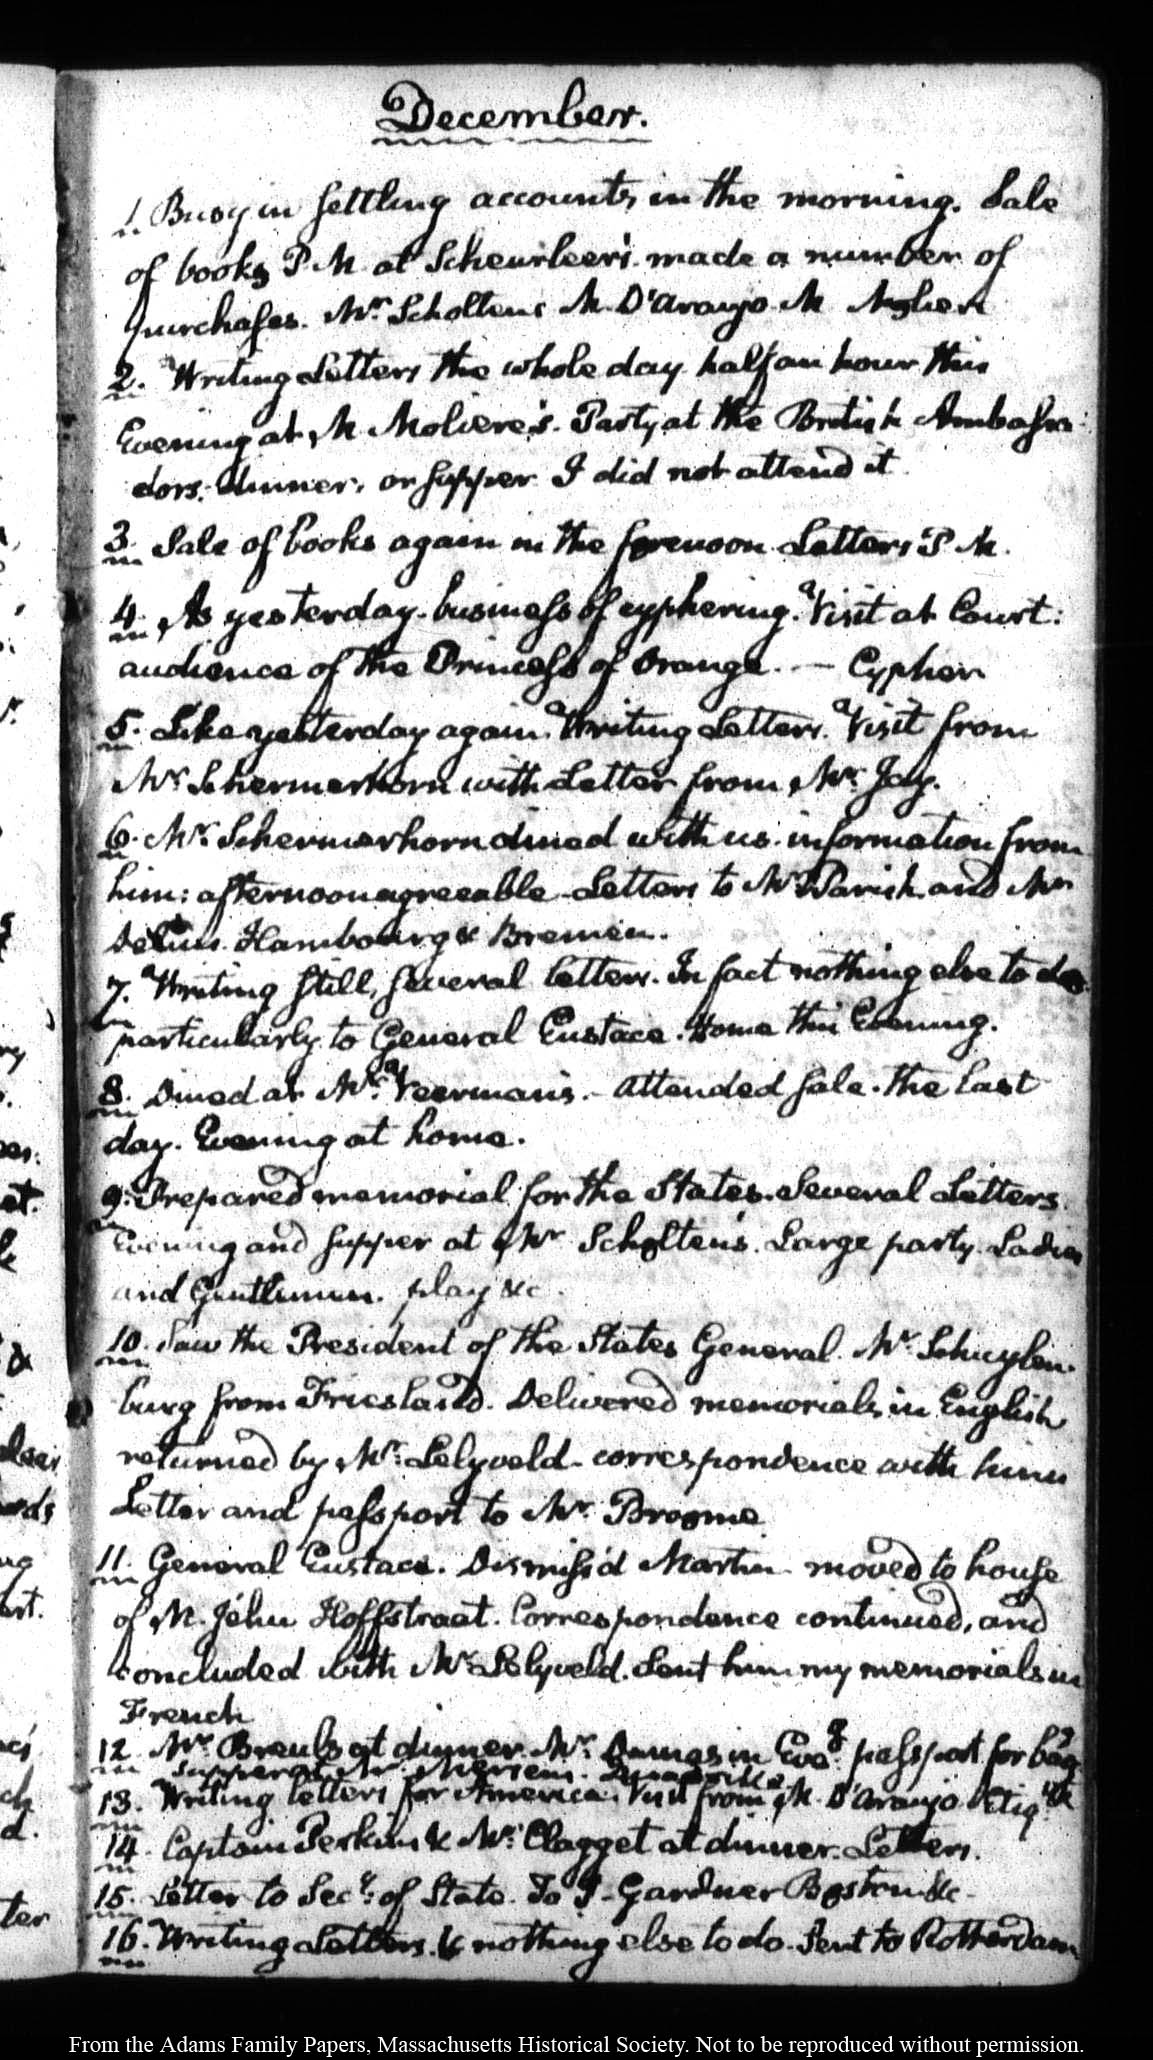 December.
1. Busy in settling accounts in the morning. Sale
of books P.M. at Scheurleer's. made a number of
purchases. Mr. Scholtens M. D'Araujo M.
2. Writing Letters the whole day. half an hour this
Evening at M. Moliere's. Party at the British Ambassa-
dors. dinner, or supper I did not attend it
3. Sale of books again in the forenoon. Letters P.M.
4. As yesterday. business of cyphering. Visit at Court:
audience of the Princess of Orange. — Cypher
5. Like yesterday again. Writing Letters. Visit from
Mr. Schermerhorn with Letter from Mr. Jay.
6. Mr. Schermerhorn dined with us. information from
him: afternoon agreeable. Letters to Mr. Parish and Mr
Delius. Hambourg & Bremen.
7. Writing still, several letters. In fact nothing else to do
particularly to General Eustace. Home this Evening.
8. Dined at Mr. Veerman's. - attended sale. the last
day. Evening at home.
9. Prepared memorial for the States. Several Letters.
Evening and supper at Mr Scholten's. Large party. Ladies
and Gentlemen. play &c.
10. Saw the President of the States General. Mr. Schuylen-
burg from Friesland. Delivered memorials in English
returned by Mr. Lelyveld - correspondence with him
Letter and passport to Mr. Broome
11. General Eustace. Dismiss'd Martin. moved to house
of M. Jéhu Hoffstraat. Correspondence continued, and
concluded with Mr. Lelyveld. Sent him my memorials in
French
12. Mr. Breuls at dinner. Mr. Damas in Eveg. passport for
supper at Mr.
13. Writing letters for America. Visit from M. D'Araujo.
14. Captain Perkins & Mr. Clagget at dinner. Letters.
15. Letter to Secy. of State. To J. Gardner Boston &c -
16. Writing Letters. & nothing else to do. Sent to Rotterdam
From the Adams Family Papers, Massachusetts Historical Society. Not to be reproduced without permission.